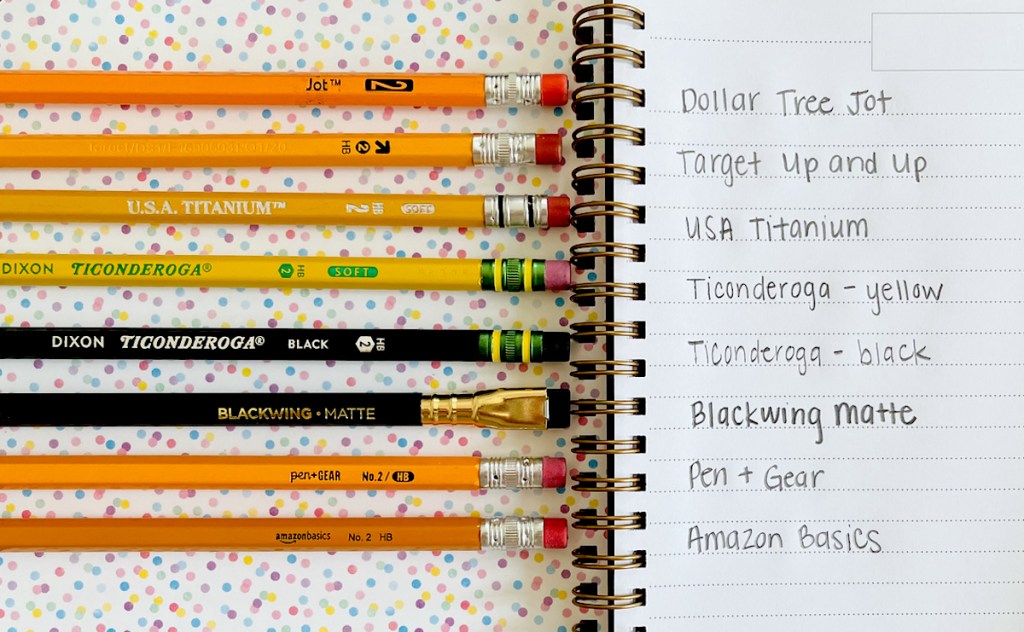 Jot™ 2
Dollar Tree Jot
HB 2
Target Up and Up
U.S.A. TITANIUM™ 2 HB SOFT
USA Titanium
DIXON TICONDEROGA® 2 HB SOFT
Ticonderoga - yellow
DIXON TICONDEROGA® BLACK 2 HB
Ticonderoga - black
BLACKWING • MATTE
Blackwing matte
pen+GEAR No.2 / HB
Pen + Gear
amazonbasics No. 2 HB
Amazon Basics